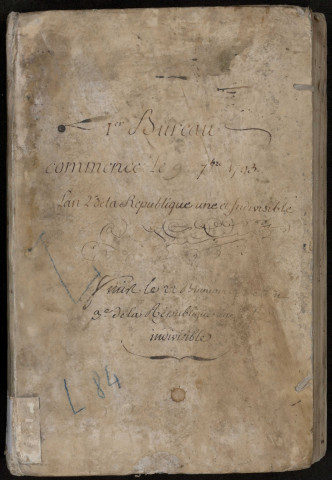 1er Bureau
commencé le 9 7bre 1793.
L'an 2 de la Republique une et Indivisible
les 22 Brum
3e de la Republique
indivisible
L 84